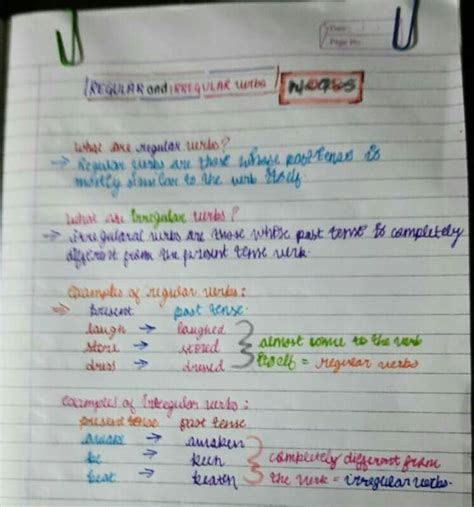 Date :
Page No.
REGULAR and IRREGULAR verbs NOTES
What are regular verbs?
→ Regular verbs are those whose past tense is
mostly similar to the verb itself.
What are Irregular verbs?
→ irregularal verbs are those whose past tense is completely
different from the present tense verb.
Examples of regular verbs:
→ Present past tense.
laugh → laughed
store → stored almost same to the verb
dress → dressed itself = regular verbs
Examples of Irregular verbs:
present tense past tense
awake → awaken
be → been completely different from
beat → beaten the verb = irregular verbs.